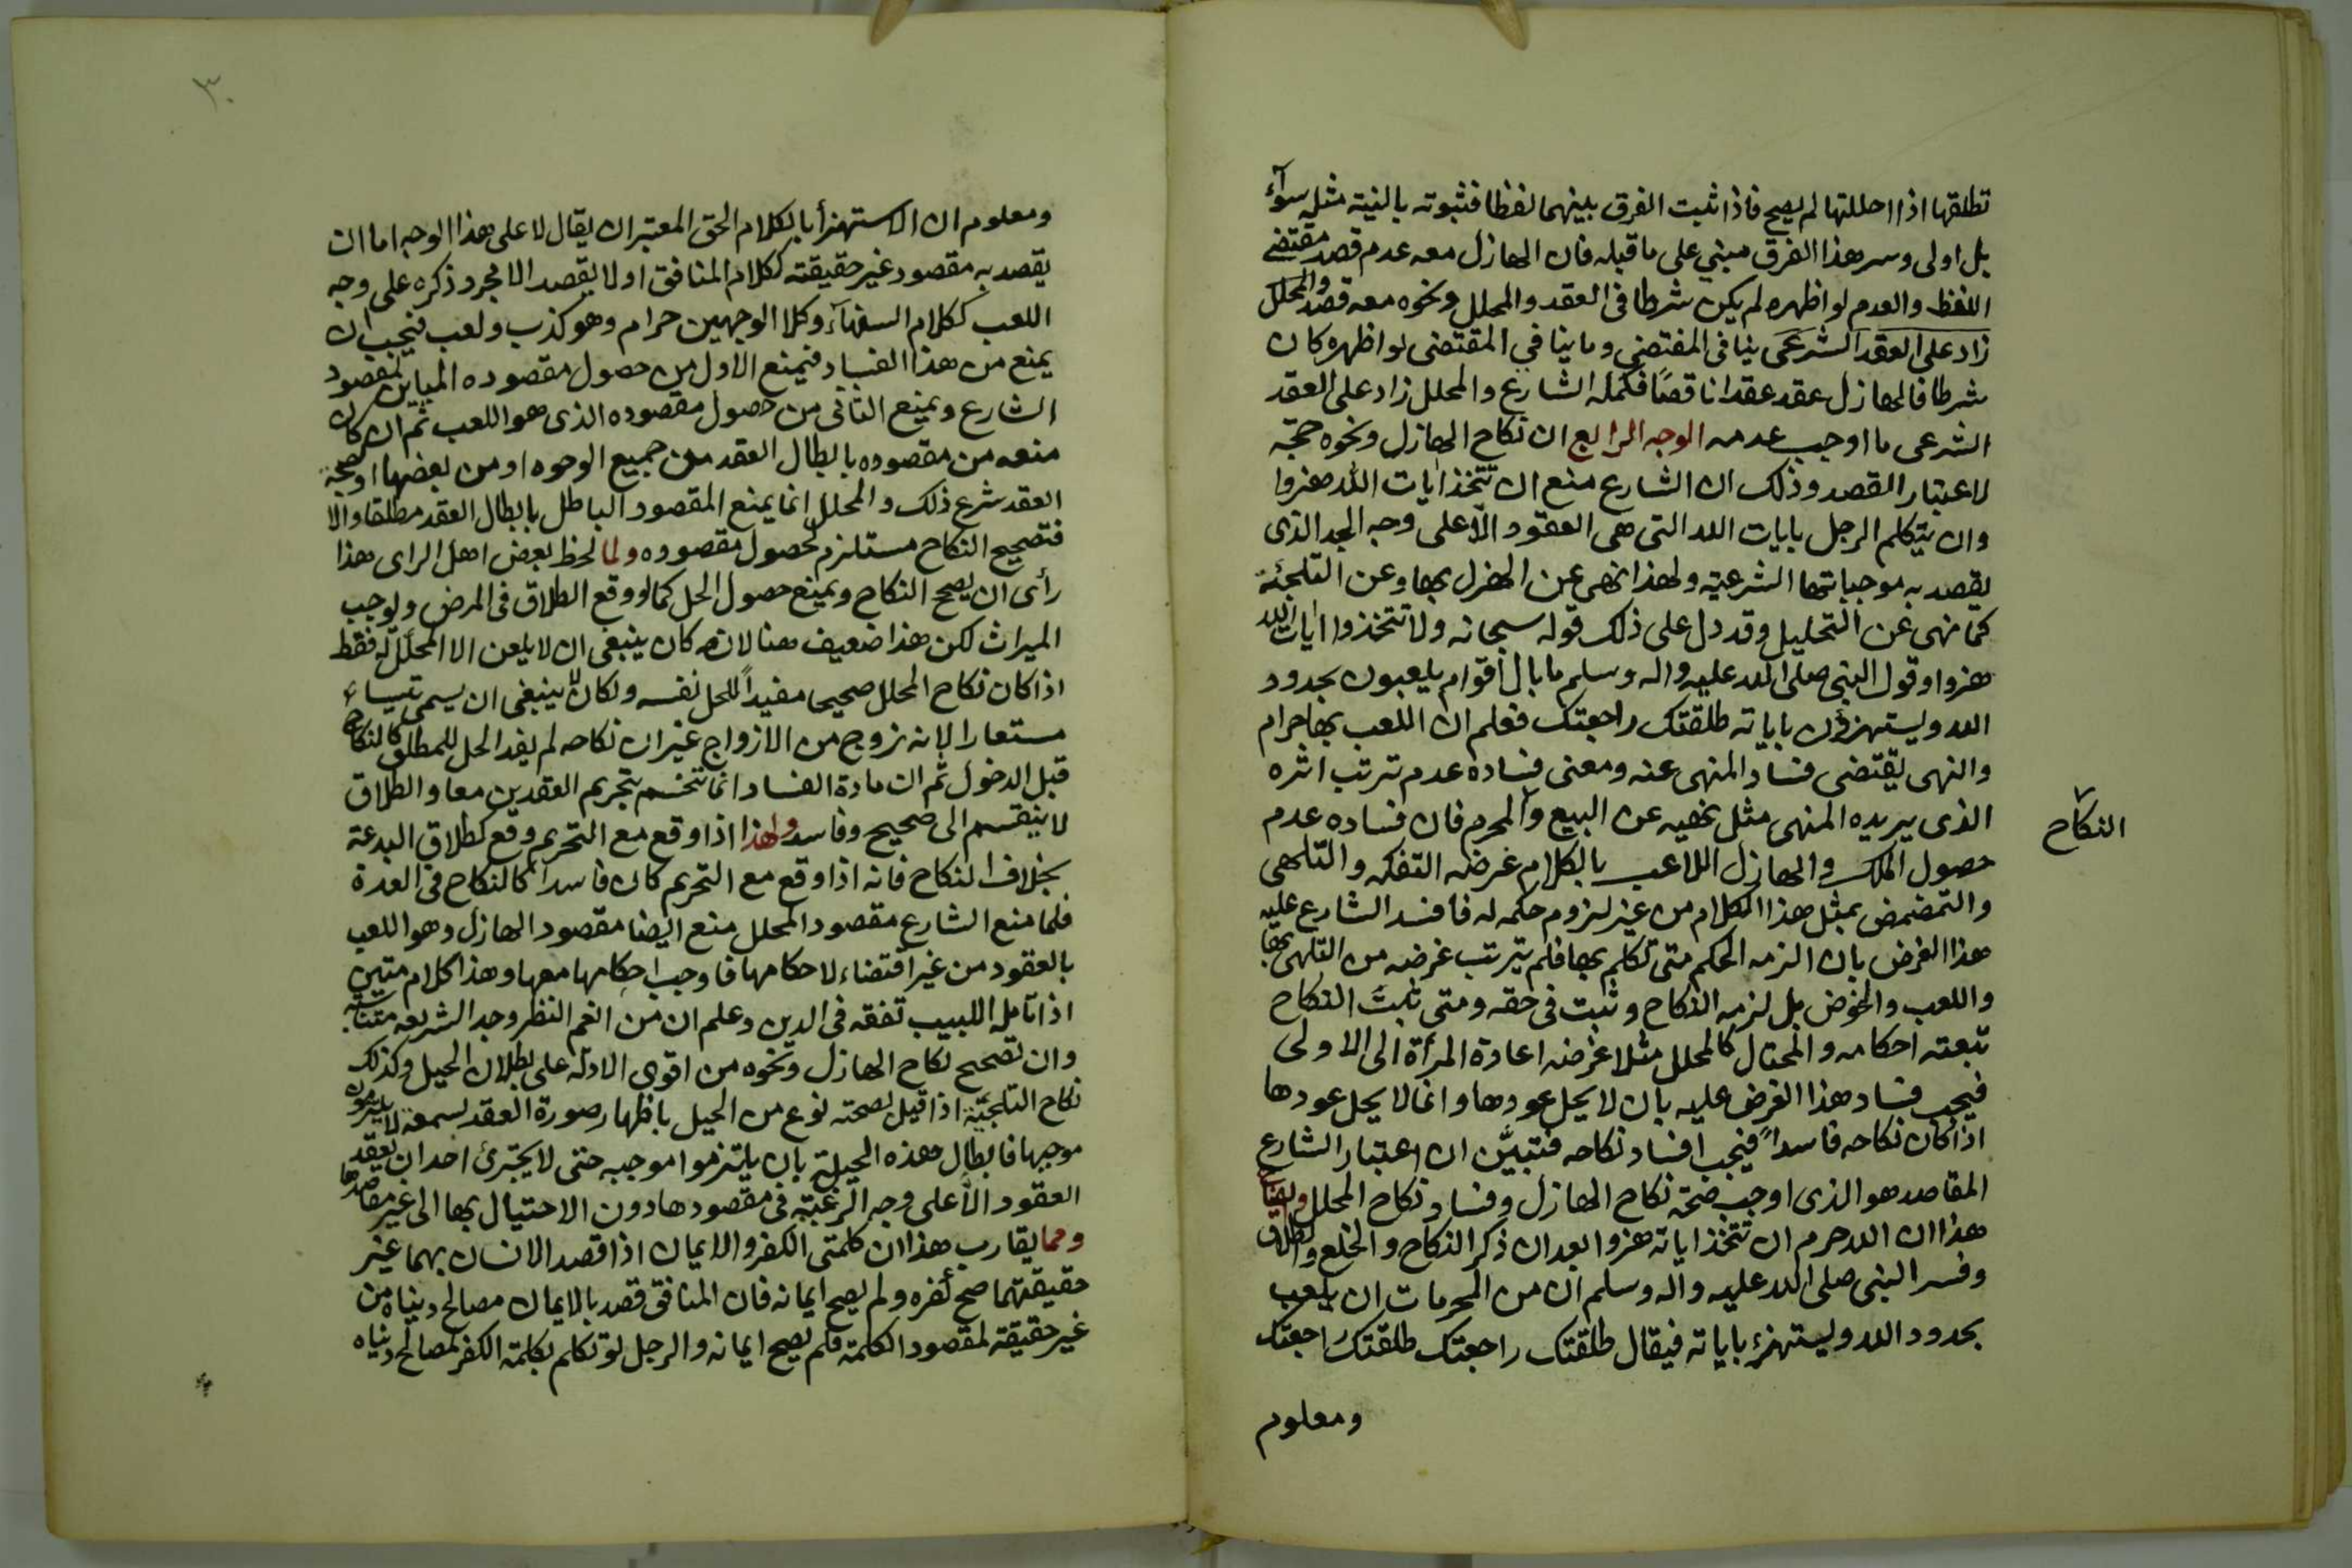 تطلقها اذا احللتها لم يصح فاذا ثبت الفرق بينهما لفظا فثبوته بالنية مثله سوآء
بل اولى وسر هذا الفرق مبني على ما قبله فان الهازل معه عدم قصد مقتضى
اللفظ والعدم لو اظهره لم يكن شرطا فى العقد والمحلل ونحوه معه قصد والمحلل
زاد على العقد الشرعى ينافى المقتضى وما ينافي المقتضى لو اظهره كان
شرطا فالهازل عقد عقدا ناقصًا فكمله الشارع والمحلل زاد على العقد
الشرعى ما اوجب عدمه الوجه الرابع ان نكاح الهازل ونحوه حجته
لاعتبار القصد وذلك ان الشارع منع ان تتخذ ايات الله هزوا
وان يتكلم الرجل بايات الله التى هى العقود الا على وجه الجد الذى
يقصد به موجباتها الشرعية ولهذا نهى عن الهزل بها وعن التلجئة
كما نهى عن التحليل وقد دل على ذلك قوله سبحانه ولا تتخذوا ايات الله
هزوا وقول النبى صلى الله عليه واله وسلم ما بال اقوام يلعبون بحدود
الله ويستهزؤن باياته طلقتك راجعتك فعلم ان اللعب بها حرام
والنهى يقتضى فساد المنهى عنه ومعنى فساده عدم ترتب اثره
الذى يريده المنهى مثل نهيه عن البيع والمحرم فان فساده عدم
النكاح
حصول الملك والهازل اللاعب بالكلام غرضه التفكه والتلهى
والتمضمض بمثل هذا الكلام من غير لزوم حكمه له فافسد الشارع عليه
هذا الغرض بان الزمه الحكم متى تكلم بها فلم يترتب غرضه من التلهى بها
واللعب والخوض بل لزمه النكاح وثبت فى حقه ومتى ثبتَ النكاح
تبعته احكامه والمحتال كالمحلل مثلا غرضه اعادة المرأة الى الاولى
فيجب فساد هذا الغرض عليه بان لا يحل عودها وانما لا يحل عودها
اذا كان نكاحه فاسداً فيجب افساد نكاحه فتبيَّن ان اعتبار الشارع
المقاصد هو الذى اوجب صحة نكاح الهازل وفساد نكاح المحلل
هذا ان الله حرم ان تتخذ اياته هزوا بعد ان ذكر النكاح والخلع والطلاق
وفسر النبى صلى الله عليه واله وسلم ان من المحرمات ان يلعب
بحدود الله ويستهزئ باياته فيقال طلقتك راجعتك طلقتك راجعتك
ومعلوم
٣٠
ومعلوم ان الاستهزأ بالكلام الحق المعتبر ان يقال لا على هذا الوجه اما ان
يقصد به مقصود غير حقيقته ككلام المنافق او لا يقصد الا مجرد ذكره على وجه
اللعب ككلام السفهآء وكلا الوجهين حرام وهو كذب ولعب فيجب ان
يمنع من هذا الفساد فيمنع الاول من حصول مقصوده المباين لمقصود
الشارع ويمنع الثانى من حصول مقصوده الذى هو اللعب ثم ان كان
منعه من مقصوده بابطال العقد من جميع الوجوه او من بعضها اوصحة
العقد شرع ذلك والمحلل انما يمنع المقصود الباطل بابطال العقد مطلقا والا
فتصحيح النكاح مستلزم لحصول مقصوده ولما لحظ بعض اهل الراى هذا
رأى ان يصحح النكاح ويمنع حصول الحل كما لو وقع الطلاق فى المرض ويوجب
الميراث لكن هذا ضعيف هنا لانه كان ينبغى ان لا يلعن الا المحلَّل له فقط
اذا كان نكاح المحلل صحيحا مفيداً للحل نفسه ولكان لا ينبغى ان يسمى تيساء
مستعارا لانه زوج من الازواج غير ان نكاحه لم يفد الحل للمطلق كالنكاح
قبل الدخول ثم ان مادة الفساد انما تنحسم بتحريم العقدين معا والطلاق
لا ينقسم الى صحيح وفاسد ولهذا اذا وقع مع التحريم وقع كطلاق البدعة
بخلاف النكاح فانه اذا وقع مع التحريم كان فاسدا كالنكاح فى العدة
فلما منع الشارع مقصود المحلل منع ايضا مقصود الهازل وهو اللعب
بالعقود من غير اقتضاء لاحكامها فاوجب احكامها معها وهذا كلام متين
اذا تأمله اللبيب تفقه فى الدين وعلم ان من انعم النظر وجد الشريعه متناسبة
وان تصحيح نكاح الهازل ونحوه من اقوى الادلة على بطلان الحيل وكذلك
نكاح التلجئة اذا قيل بصحته نوع من الحيل باظهار صورة العقد لسمعة لا يلتزمون
موجبها فابطال هذه الحيلة بان يلتزموا موجبه حتى لا يجترئ احد ان يعقد
العقود الا على وجه الرغبة فى مقصودها دون الاحتيال بها الى غير مقاصدها
ومما يقارب هذا ان كلمتى الكفر والايمان اذا قصد الانسان بهما غير
حقيقتهما صح كفره ولم يصح ايمانه فان المنافق قصد بالايمان مصالح دنياه من
غير حقيقة لمقصود الكلمة فلم يصح ايمانه والرجل لو تكلم بكلمة الكفر لمصالح دنياه